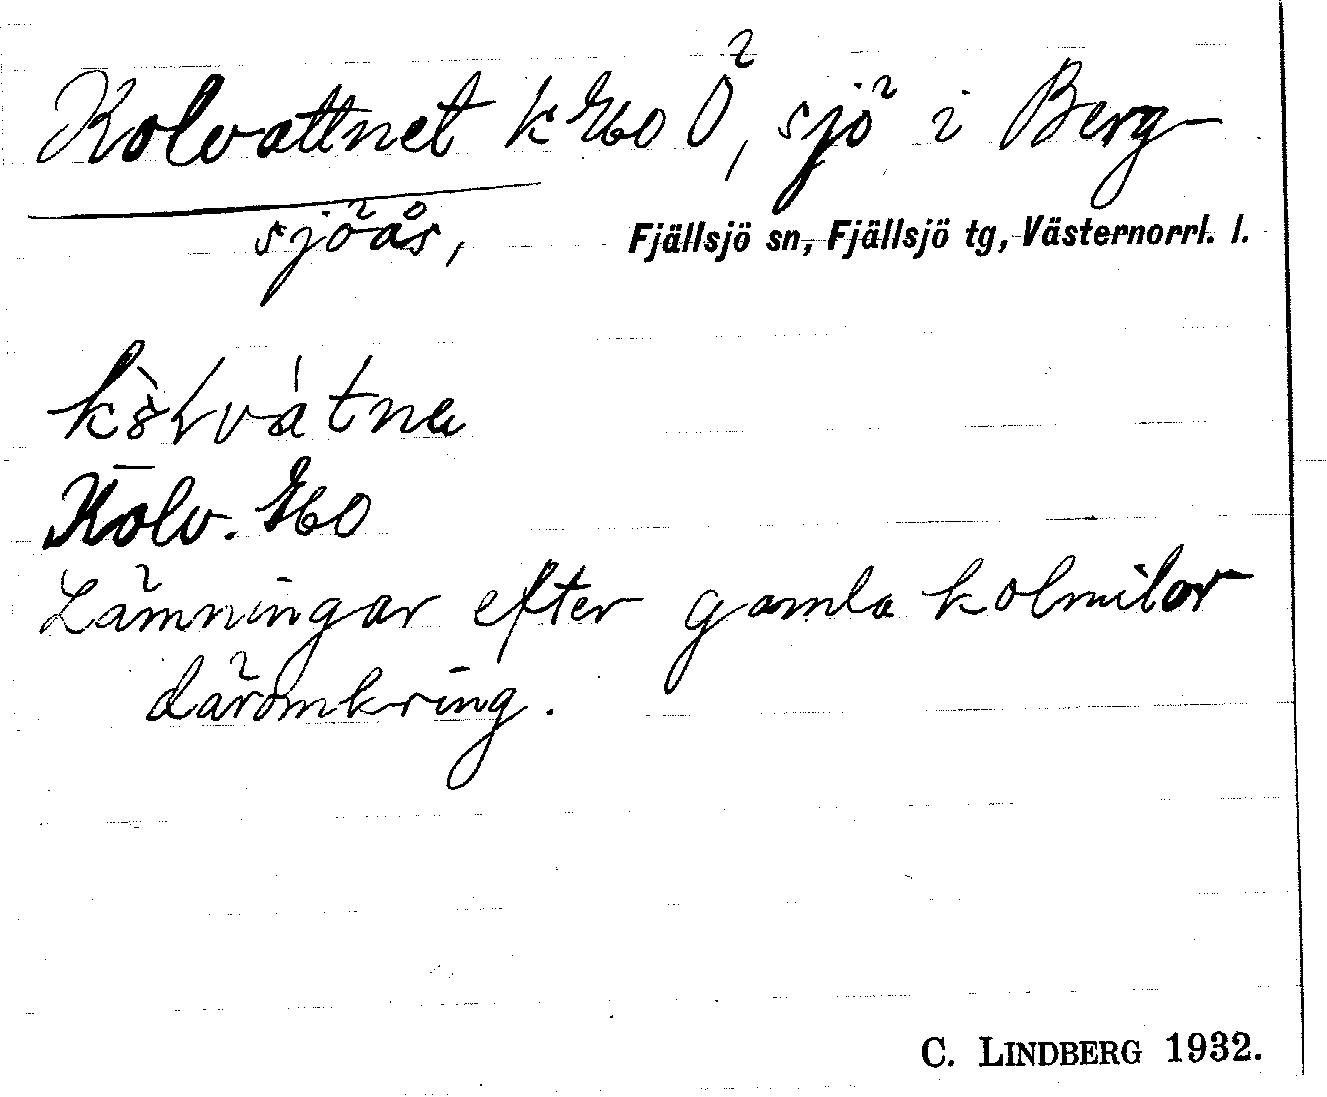 Kolvattnet k 760 Ö, sjö i Berg-
sjöås,
Fjällsjö sn, Fjällsjö tg, Västernorrl. l.
Kolv. 760
Lämningar efter gamla kolmilor
däromkring.
C. LINDBERG 1932.